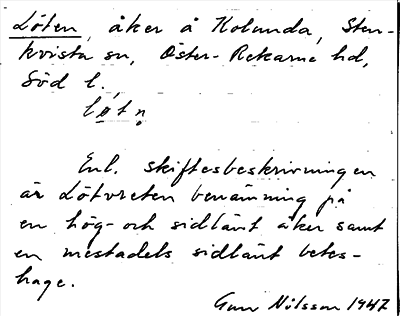 Löten, åker å Kolunda, Sten-
kvista sn, Öster-Rekarne hd,
Söd l.
lø̀tn̥
Enl. skiftesbeskrivningen
är Lötvreten benämning på
en hög- och sidlänt åker samt
en mestadels sidlänt betes-
hage.
Gun Nilsson 1947